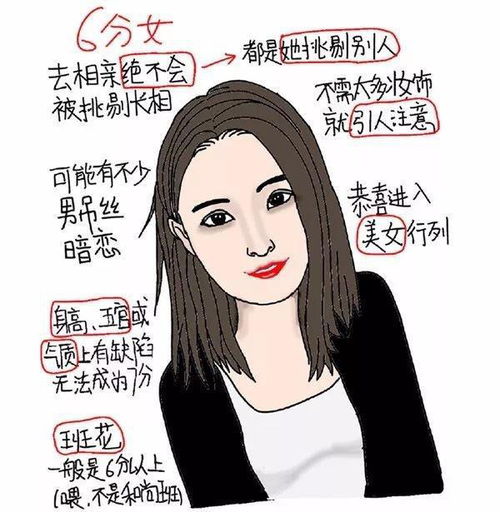 6分女
去相亲绝不会
被挑剔长相
都是她挑剔别人
不需太多妆饰
就引人注意
可能有不少
男吊丝
暗恋
恭喜进入
美女行列
身高、五官或
气质上有缺陷
无法成为7份
班花
一般是6分以上
(喂,不是和尚班)